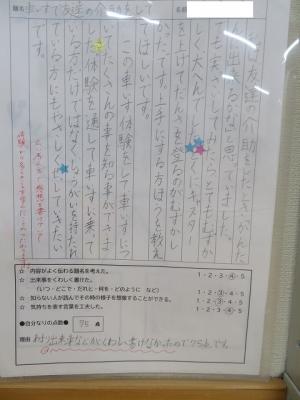 題名 車いすで友達の介助をして
名前
私は友達の介助をしたとき、かんた
んに出来るかなと思っていました。
でも実さいしてみたらとてもむずか
しく大へんでした。特にキャスター
を上げてだんさを登るのがむずかし
かったです。上手にする方ほうを教え
てほしいです。
この車いす体験をして車いすにつ
いてたくさんの事を知る事ができま
した。体験を通して車いすに乗って
いる方だけではなくしょうがいを持たれ
ている方にもやさしくせっしていきたい
です。
☆ 内容がよく伝わる題名を考えた。 1・2・3・④・5
☆ 出来事をくわしく書けた。
(いつ・どこで・だれと・何を・どのように など) 1・2・③・4・5
☆ 知らない人が読んでその時の様子を想像することができる。 1・2・③・4・5
☆ 気持ちを表す言葉を工夫した。 1・2・3・④・5
●自分なりの点数● 75 点
理由 あまり出来事などがくわしく書けなかったので75点です。